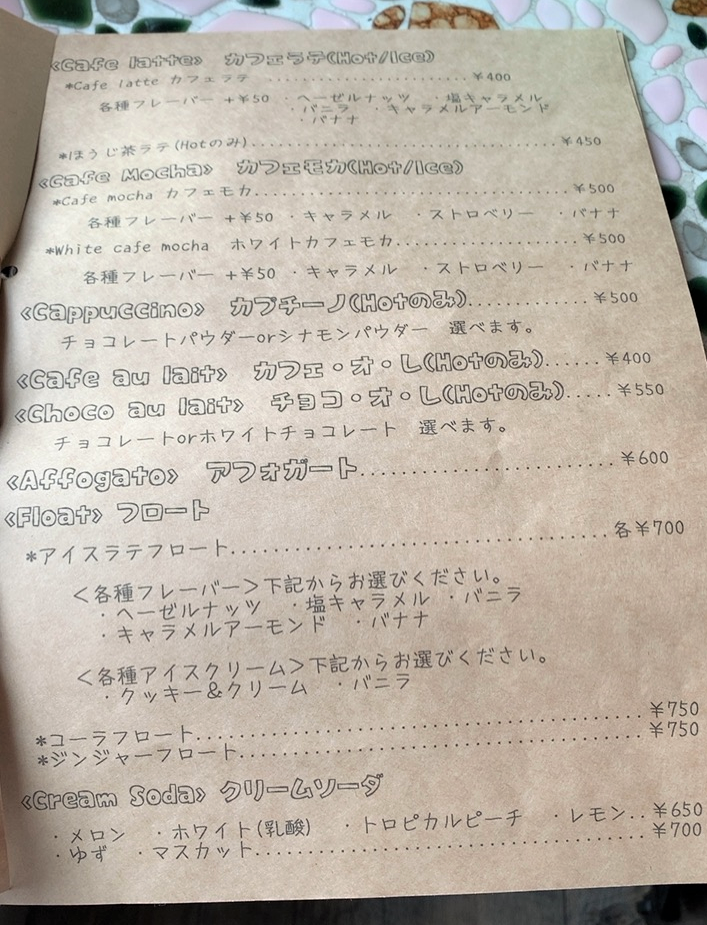 <Cafe latte> カフェラテ(Hot/Ice)
*Cafe latte カフェラテ ............................¥400
各種フレーバー +¥50 ・ヘーゼルナッツ ・塩キャラメル
・バニラ ・キャラメルアーモンド
・バナナ
*ほうじ茶ラテ(Hotのみ)....................................¥450
<Cafe Mocha> カフェモカ(Hot/Ice)
*Cafe mocha カフェモカ....................................¥500
各種フレーバー +¥50 ・キャラメル ・ストロベリー ・バナナ
*White cafe mocha ホワイトカフェモカ..................¥500
各種フレーバー +¥50 ・キャラメル ・ストロベリー ・バナナ
<Cappuccino> カプチーノ(Hotのみ)............¥500
チョコレートパウダーorシナモンパウダー 選べます。
<Cafe au lait> カフェ・オ・レ(Hotのみ)......¥400
<Choco au lait> チョコ・オ・レ(Hotのみ).....¥550
チョコレートorホワイトチョコレート 選べます。
<Affogato> アフォガート.........................¥600
<Float> フロート
*アイスラテフロート....................................各¥700
<各種フレーバー>下記からお選びください。
・ヘーゼルナッツ ・塩キャラメル ・バニラ
・キャラメルアーモンド ・バナナ
<各種アイスクリーム>下記からお選びください。
・クッキー&クリーム ・バニラ
*コーラフロート..........................................¥750
*ジンジャーフロート......................................¥750
<Cream Soda> クリームソーダ
・メロン ・ホワイト(乳酸) ・トロピカルピーチ ・レモン..¥650
・ゆず ・マスカット.....................................¥700